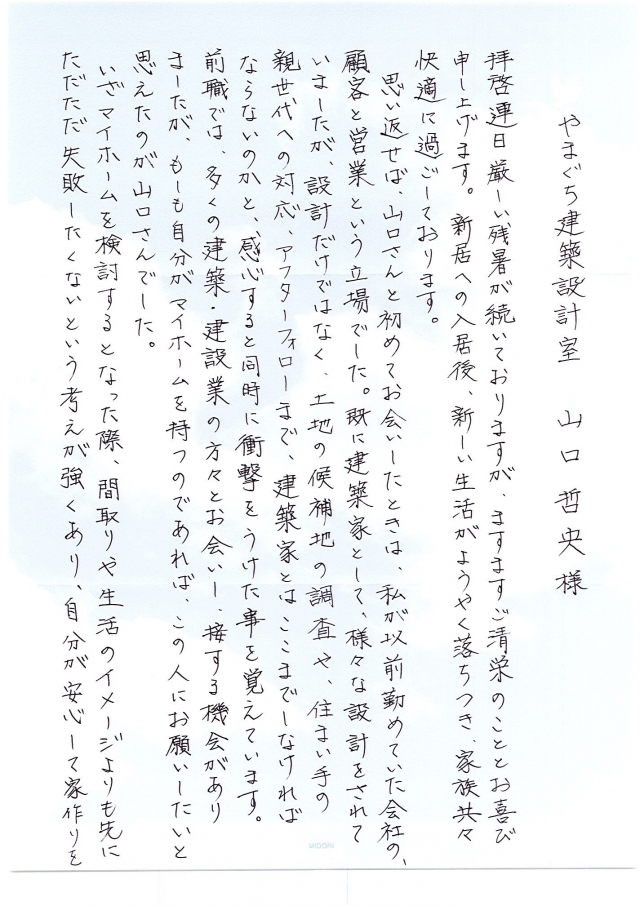 やまぐち建築設計室　山口哲央様
拝啓連日厳しい残暑が続いておりますが、ますますご清栄のこととお喜び
申し上げます。新居への入居後、新しい生活がようやく落ちつき、家族共々
快適に過ごしております。
思い返せば、山口さんと初めてお会いしたときは、私が以前勤めていた会社の、
顧客と営業という立場でした。既に建築家として、様々な設計をされて
いましたが、設計だけではなく、土地の候補地の調査や、住まい手の
親世代への対応、アフターフォローまで、建築家とはここまでしなければ
ならないのかと、感心すると同時に衝撃をうけた事を覚えています。
前職では、多くの建築・建設業の方々とお会いし、接する機会があり
ましたが、もしも自分がマイホームを持つのであれば、この人にお願いしたいと
思えたのが山口さんでした。
いざマイホームを検討するとなった際、間取りや生活のイメージよりも先に
ただただ失敗したくないという考えが強くあり、自分が安心して家作りを
MIDORI